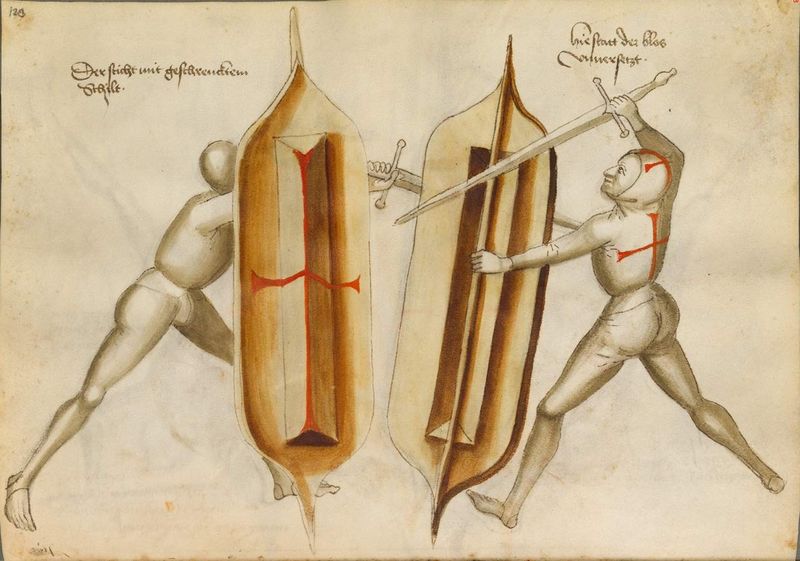 128
Der sticht mit geschrencktem
Schilt.
Hie statt der blos
vnuersetzt.